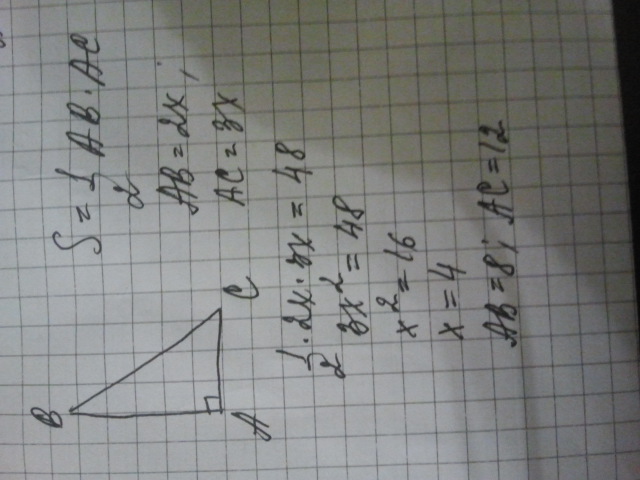 B
A
C
S = 1/2 AB · AC
AB = 2x;
AC = 3x
1/2 · 2x · 3x = 48
3x² = 48
x² = 16
x = 4
AB = 8; AC = 12